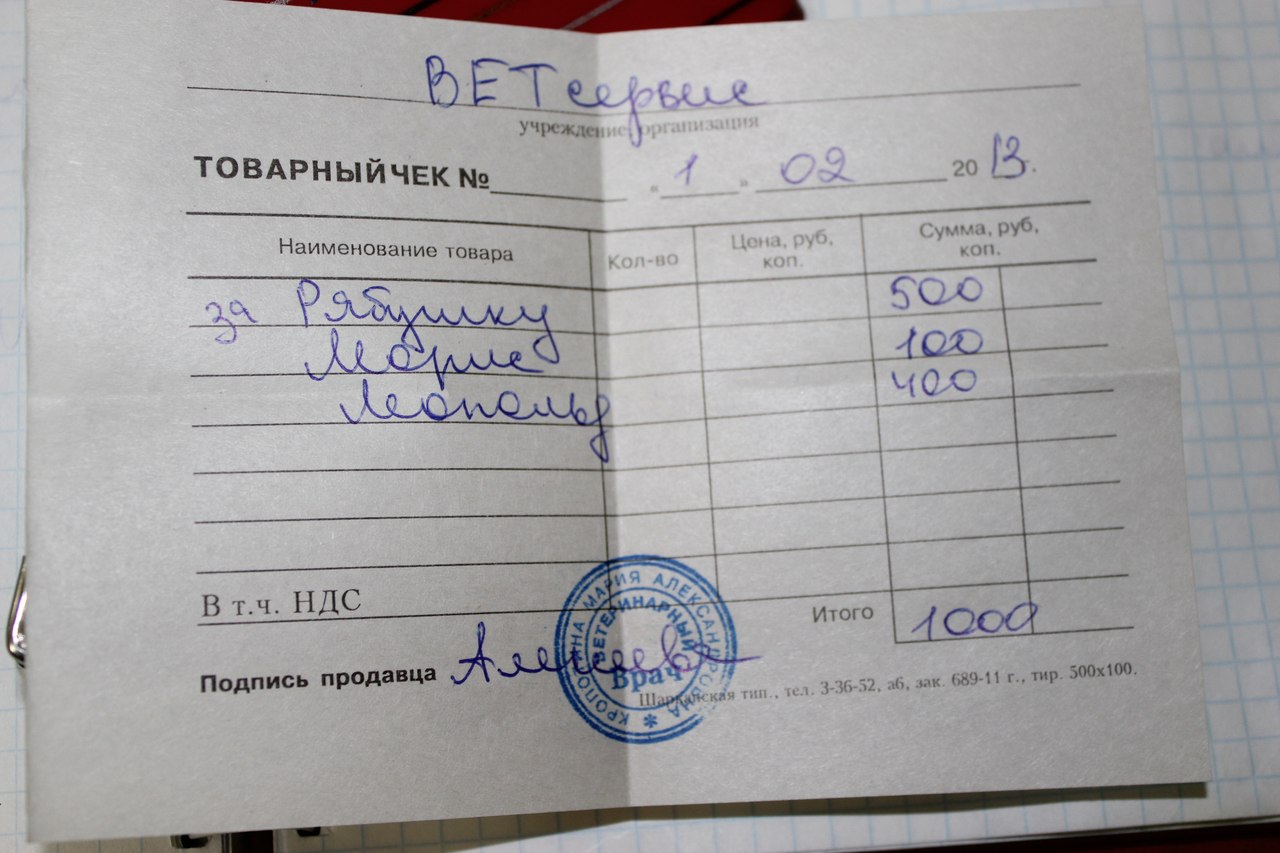 ВЕТсервис
учреждение, организация
ТОВАРНЫЙ ЧЕК № « 1 » 02 20 13.
Наименование товара Кол-во Цена, руб, коп. Сумма, руб, коп.
за Рябушку 500
Морис 100
Леопольд 400
В т.ч. НДС
Итого 1000
Подпись продавца
КРОПОТИНА МАРИЯ АЛЕКСАНДРОВНА *
ВЕТЕРИНАРНЫЙ
Врач
Шарканская тип., тел. 3-36-52, а6, зак. 689-11 г., тир. 500х100.